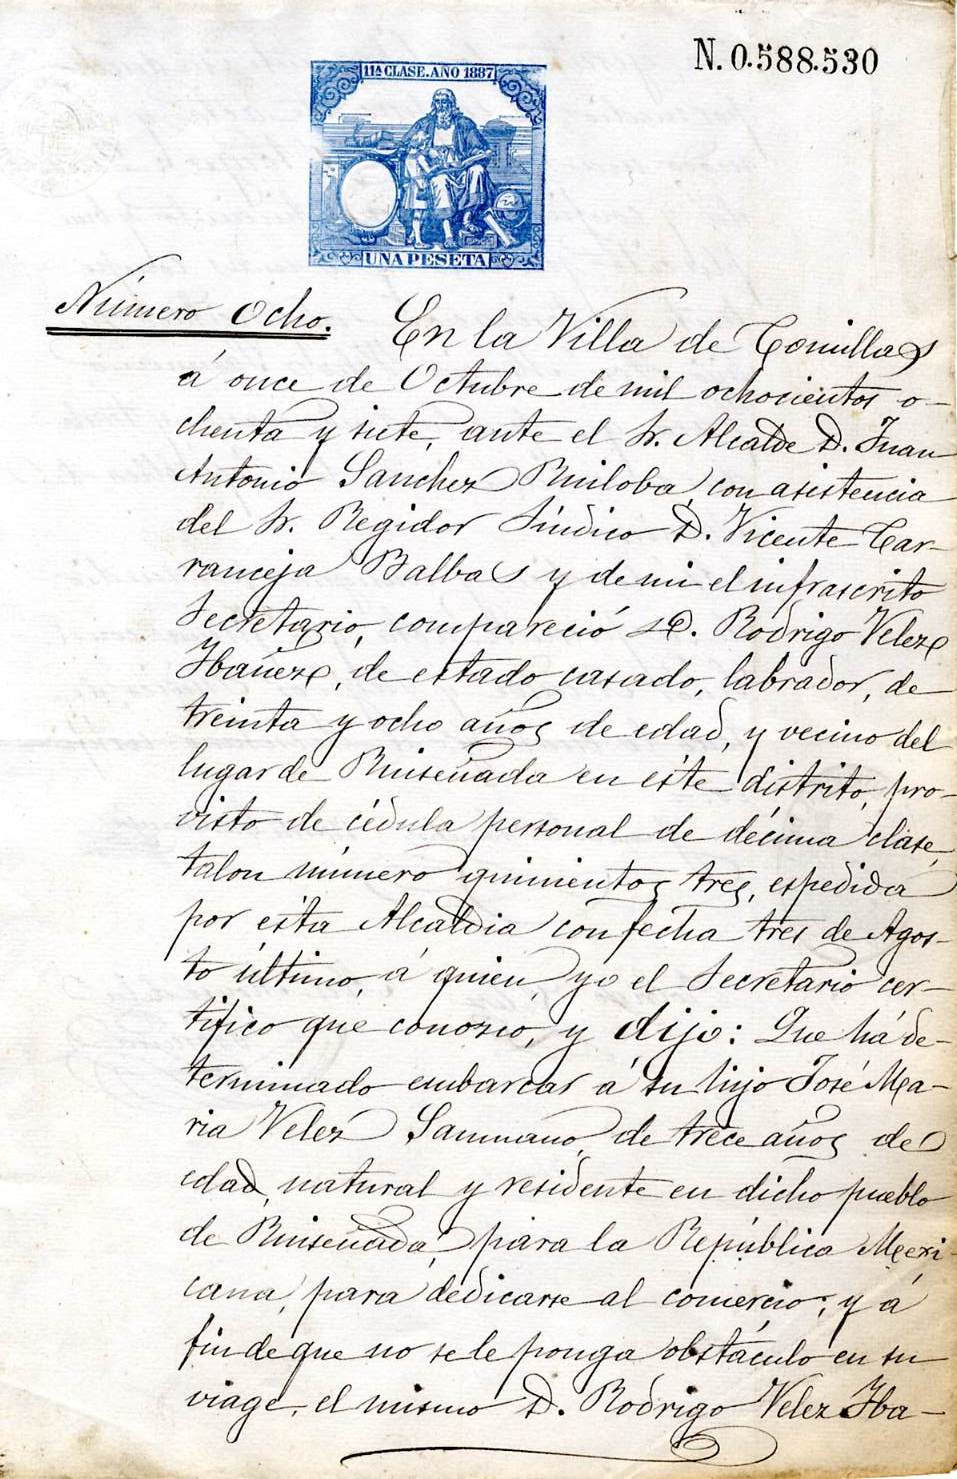 N. 0.588.530
11ª CLASE. AÑO 1887
UNA PESETA
Número Ocho. En la Villa de Comillas
á once de Octubre de mil ochocientos o-
chenta y siete, ante el Sr. Alcalde D. Juan
Antonio Sanchez Ruiloba, con asistencia
del Sr. Regidor Síndico D. Vicente Car-
ranceja Balbas y de mi el infrascrito
Secretario, compareció D. Rodrigo Velez
Ibañez, de estado casado, labrador, de
treinta y ocho años de edad, y vecino del
lugar de Ruiseñada en éste distrito, pro-
visto de cédula personal de décima clase,
talon número quinientos tres, espedida
por ésta Alcaldia con fecha tres de Agos-
to último, á quien, yo el Secretario cer-
tifico que conozco, y dijo: Que há de-
terminado embarcar á su hijo José Ma-
ria Velez Sammano, de trece años de
edad, natural y residente en dicho pueblo
de Ruiseñada, para la República Mexi-
cana, para dedicarse al comercio; y á
fin de que no se le ponga obstáculo en su
viage, el mismo D. Rodrigo Velez Iba-